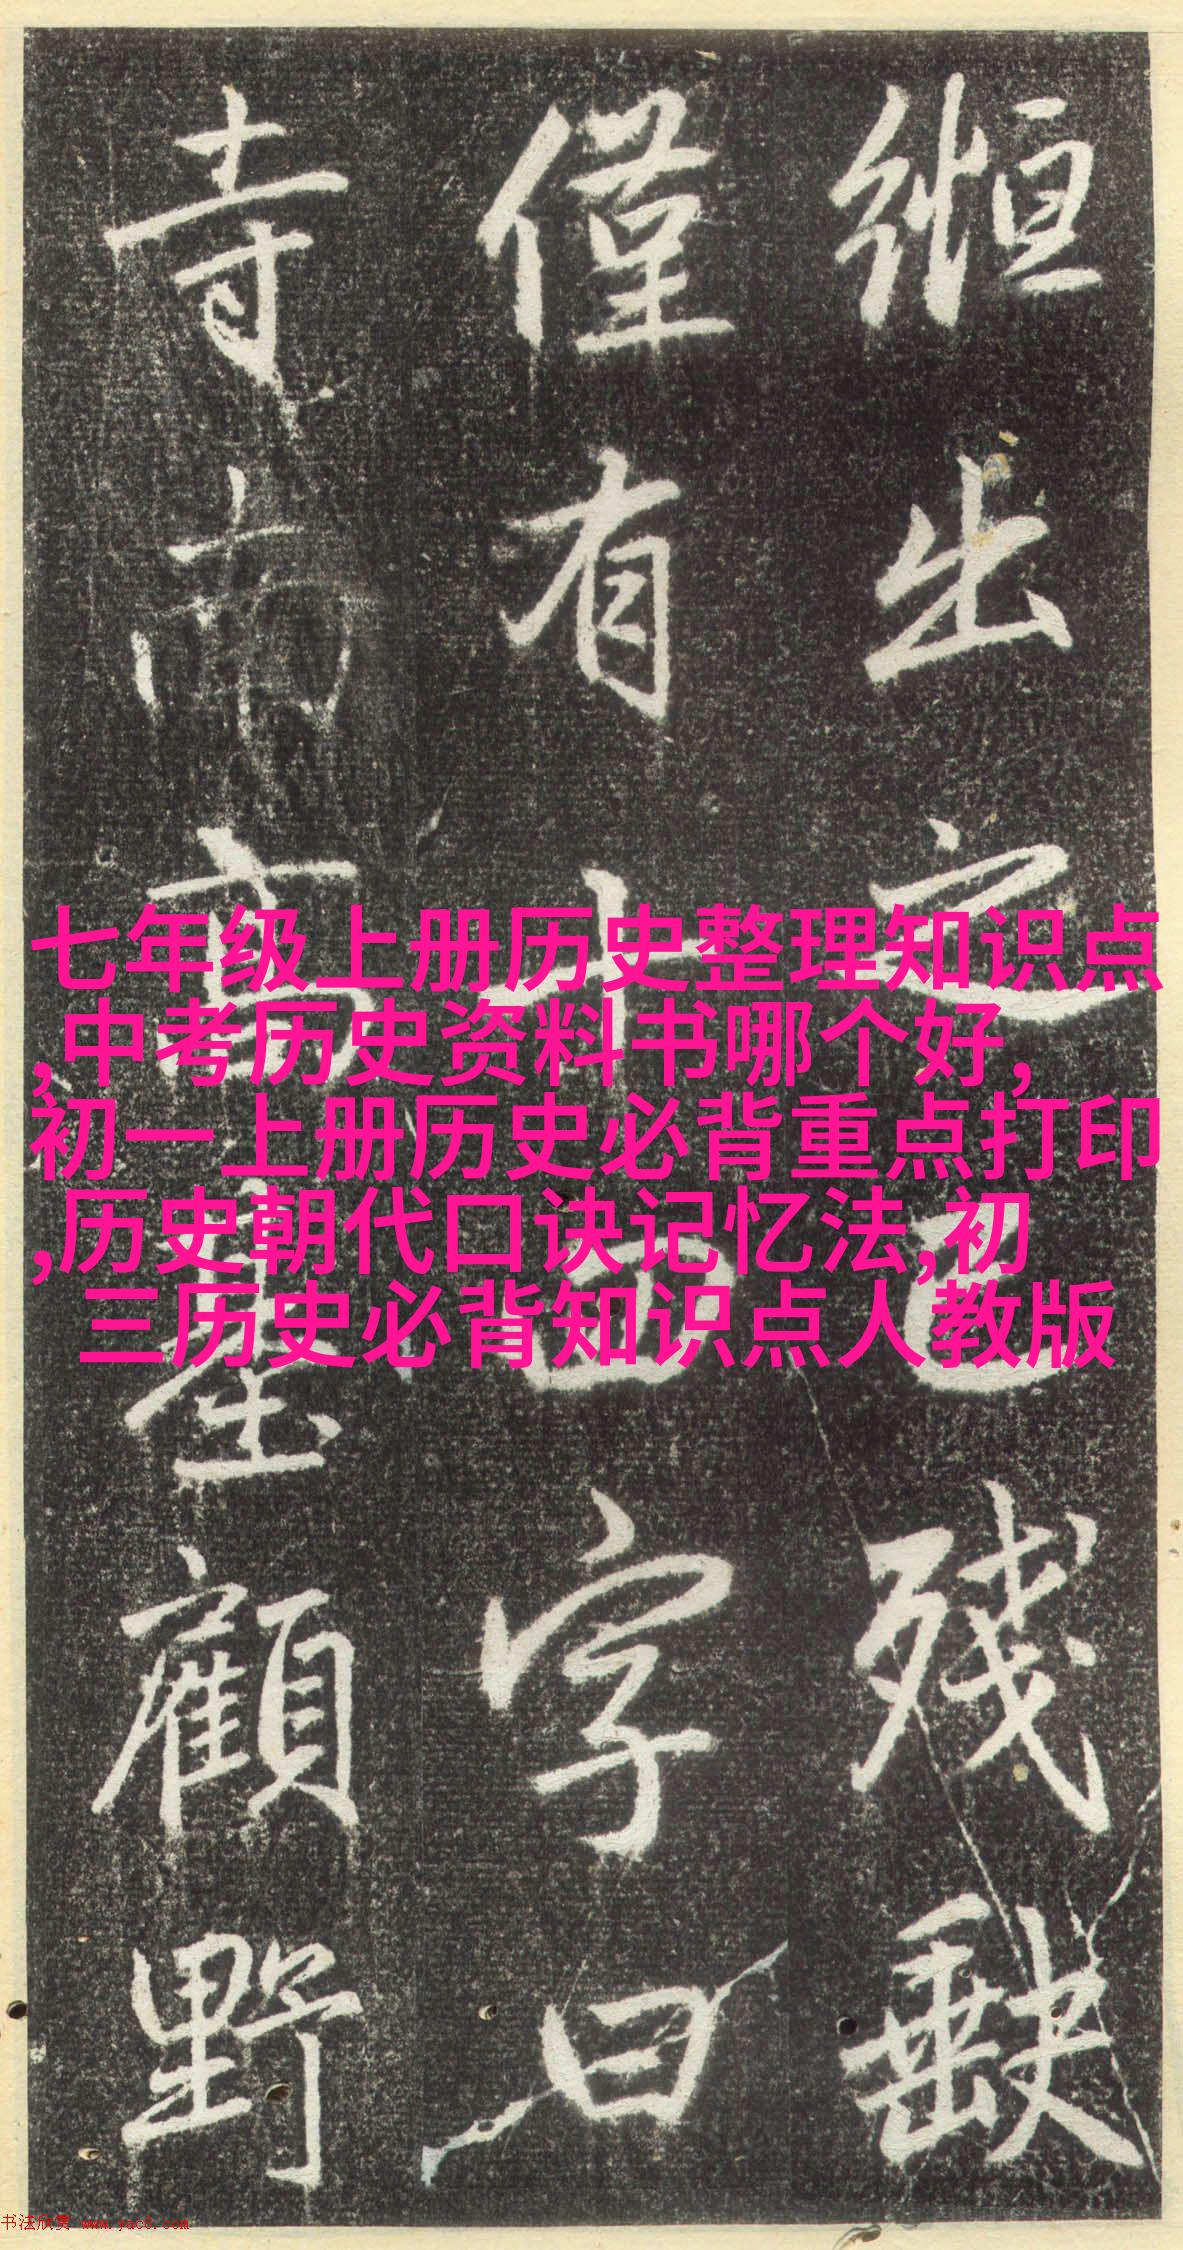 縆出之已残缺
僅有十四字曰
寺南高顧野
七年级上册历史整理知识点
,中考历史资料书哪个好,
初一上册历史必背重点打印
,历史朝代口诀记忆法,初
三历史必背知识点人教版
书法欣赏 www.yac8.com